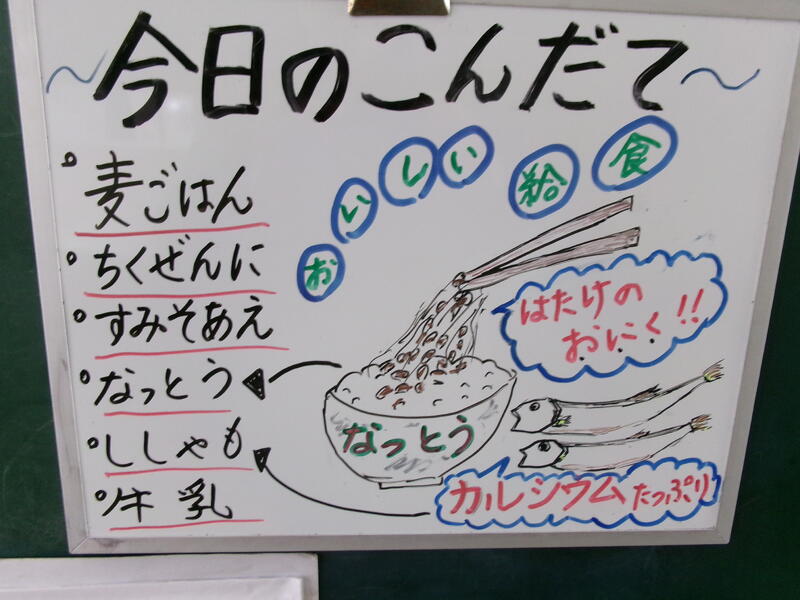 ～今日のこんだて～
おいしい給食
麦ごはん
ちくぜんに
すみそあえ
なっとう
ししゃも
牛乳
はたけの
おにく!!
なっとう
カルシウムたっぷり